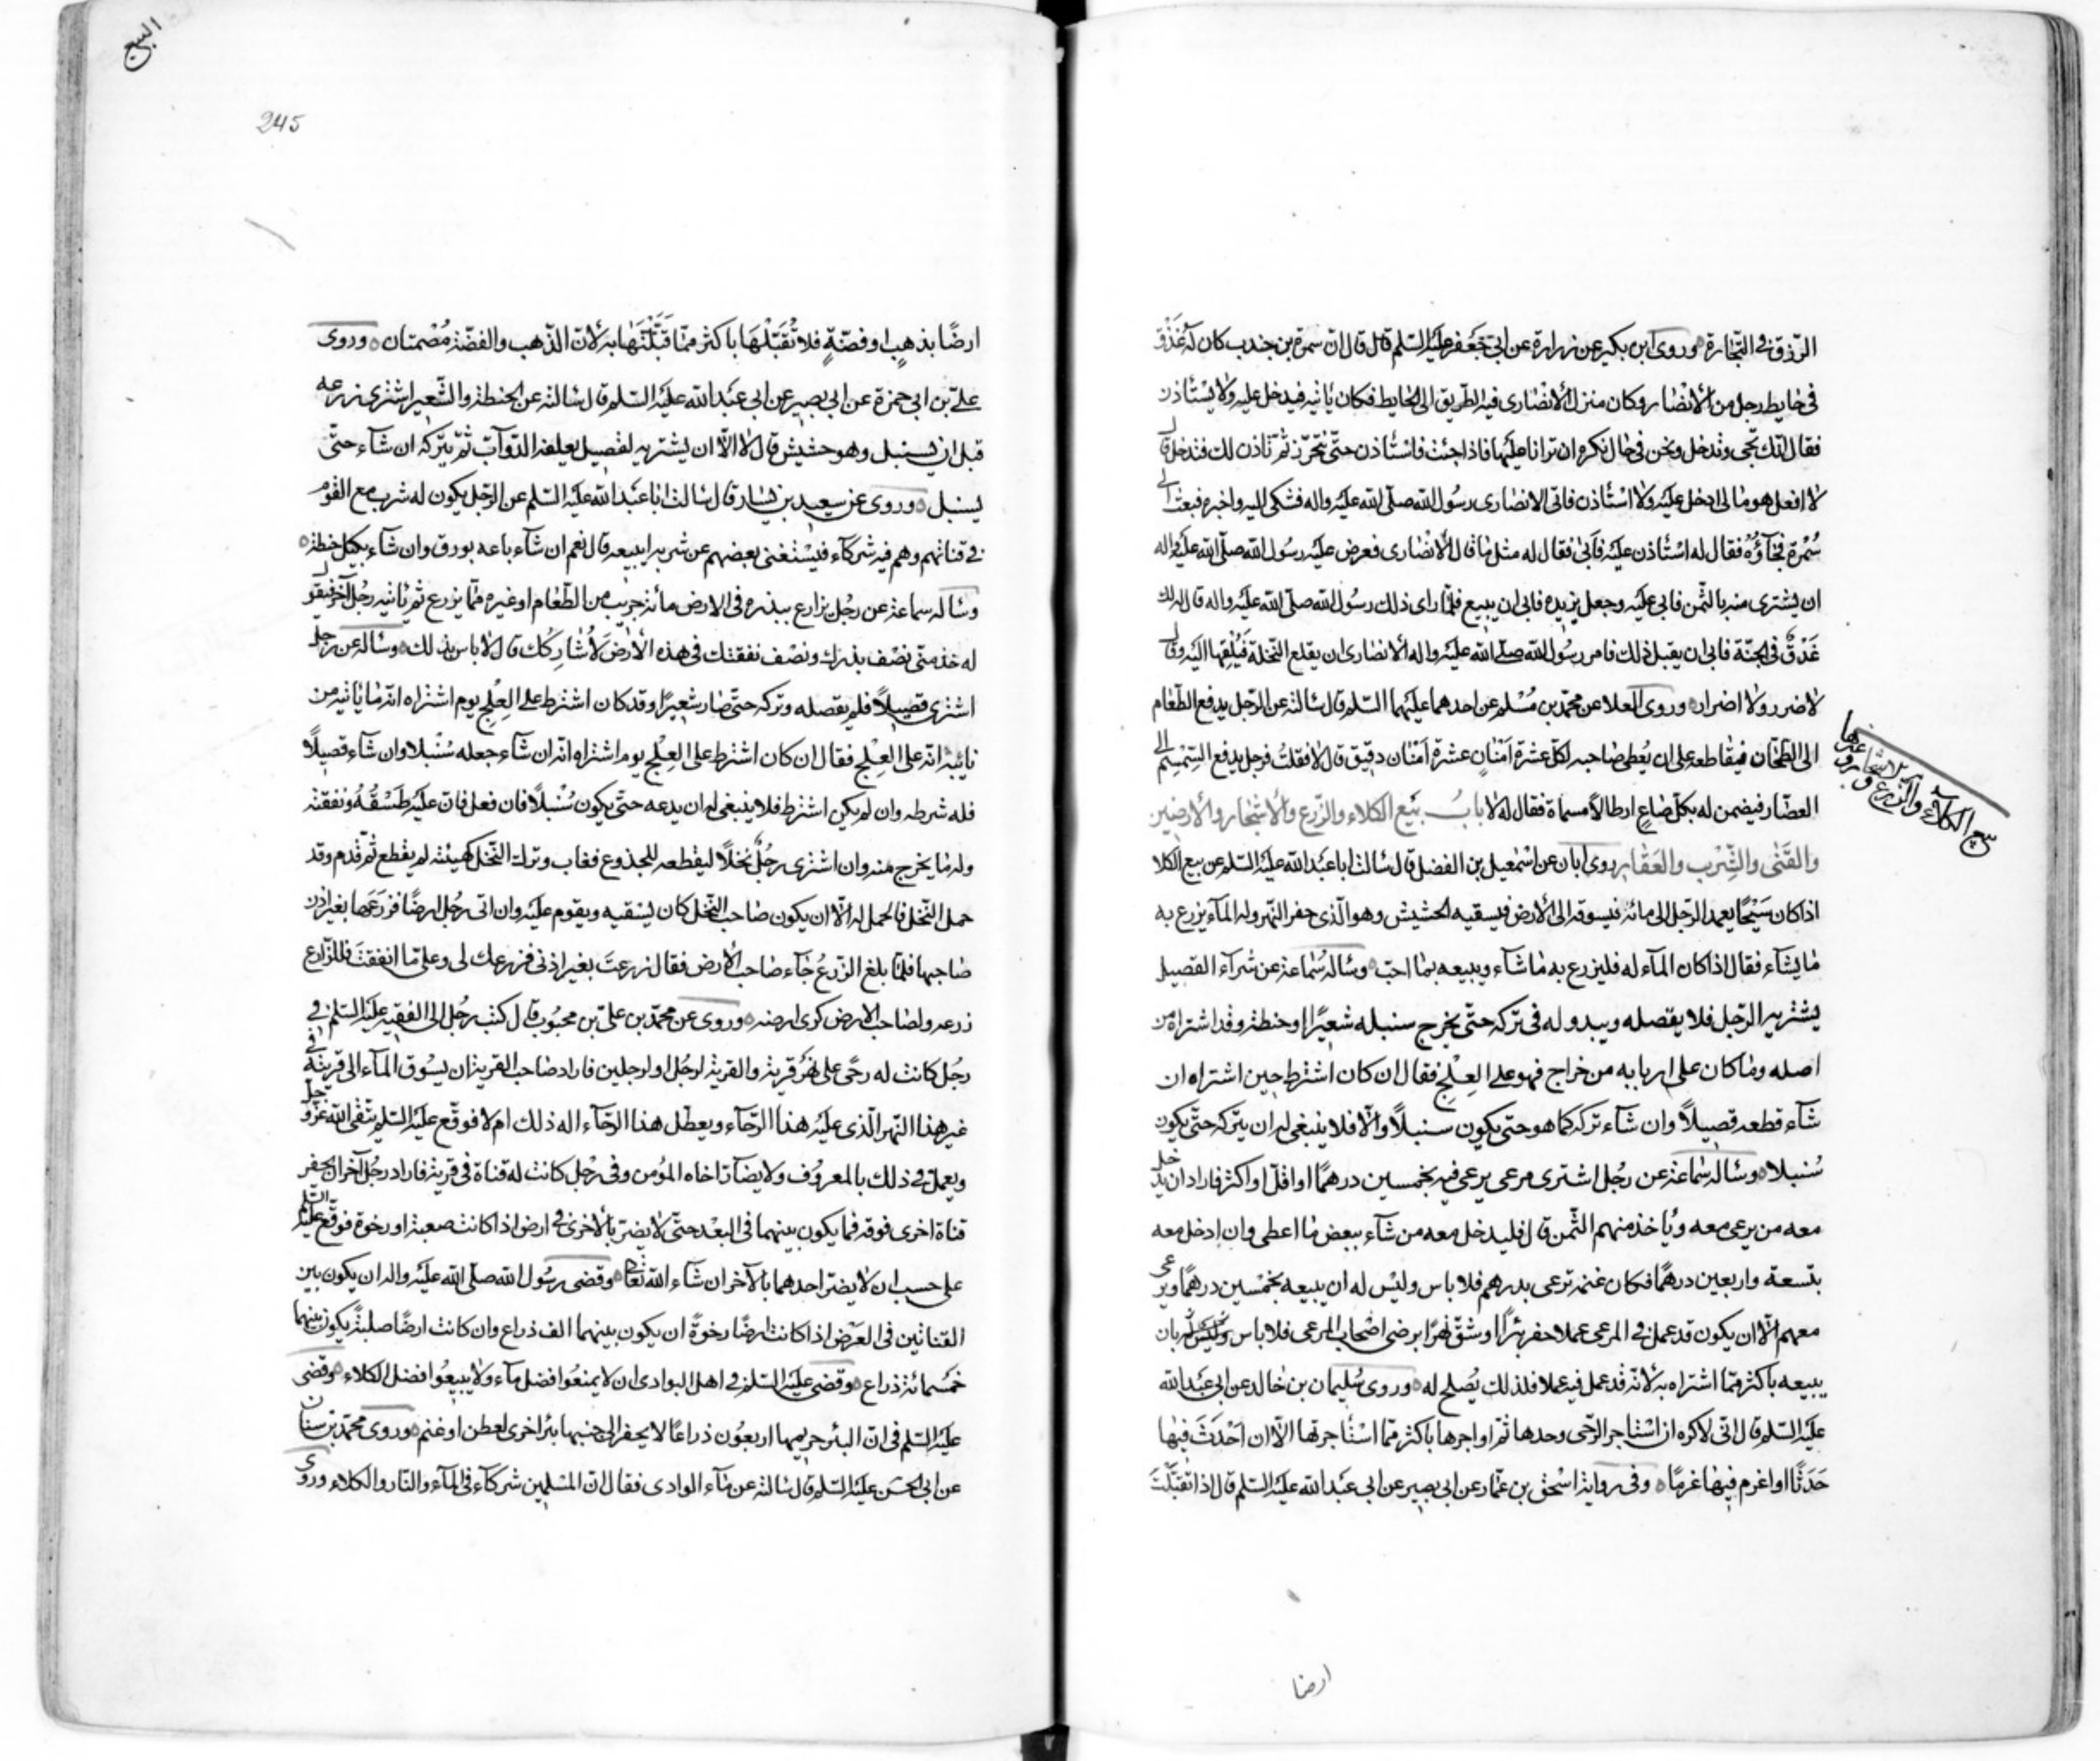 الرّزق فى التّجارة ورَوى ابن بكير عن زرارة عن ابى جَعفر عليَه السّلم قال قال انّ سمرة بن جندب كان له عَذْق
فى حايط رجل من الأنصار وكان منزل الأنصارى فيه الطريق الى الحايط فكان ياتيه فيدخل عليه ولا يستأذن
فقال انك تجى وتدخل ونحن فى حال نكره ان ترانا عليَها فاذا جئت فاستأذن حتّى نتحرّز ثم ناذن لك فتدخل قال
لا افعل هو مالى ادخل عليَه ولا استأذن فاتى الانصارى رسُول الله صلّى الله عليَه واله فشكى اليه واخبره فبعث الى
سُمرة فجآؤه فقال له استأذن عليَه فأبى فقال له مثل ما قال الأنصارى فعرض عليَه رسُول الله صلّى الله عليَه واله
ان يشترى منه بالثّمن فابى عليَه وجعل يزيده فابى ان يبيع فلمّا راى ذلك رسُول الله صلّى الله عليَه واله قال له لك
عَذْقٌ فى الجنّة فابى ان يقبل ذلك فامر رسُول الله صلّى الله عليَه واله الأنصارى ان يقلع النّخلة فَيُلْقِها اليَه وقال
لا ضرر ولا اضرار وروى العلا عن محمّد بن مُسْلم عن احدهما عليَهما السّلم قال سالته عن الرّجل يدفع الطّعام
الى الطّحّان فيقاطعه على ان يُعطى صاحبه لكلّ عشرة اَمْنانٍ عشرة اَمْنان دقيق قال لا فقلتُ فرجل يدفع السّمسم الى
العصّار فيضمن له بكلّ صَاعٍ ارطالاً مسماة فقال لا بابُ بَيْع الكلاء والزّرع والأشجار والأرضين
والقَنٰى والشِّرب والعَقار روى ابان عن اسْمعيل بن الفضل قال سَالت ابا عَبْد الله عليَه السّلم عن بيع الكلا
اذا كان سَيْحًا يعمد الرّجل الى مائه فيسوقه الى الأرض فيسقيه الحشيش وهو الّذى حفر النّهر وله المآء يزرع به
ما يشآء فقال اذا كان المآء له فليزرع به ما شآء ويبيعه بما احبّ وساله سُماعة عن شرآء القصيل
يشتريه الرّجل فلا يقصله ويبدو له فى تركه حتّى يخرج سنبله شعيرًا او حنطة وقد اشتراه من
اصله وما كان على اربابه من خراج فهو على العِلْج فقال ان كان اشترط حين اشتراه ان
شآء قطعه قصيلاً وان شآء تركه كما هو حتى يكون سنبلاً والّا فلا ينبغى له ان يتركه حتّى يكون
سُنبلا وساله سماعة عن رجُل اشترى مرعى يرعى فيه بخمسين درهمًا او اقلّ او اكثر فاراد ان يدخل
معه من يرعى معه ويُاخذ منهم الثّمن قال فليدخل معه من شآء ببعض ما اعطى وان ادخل معه
بتسعة واربعين درهمًا فكان غنمه ترعى بدرهم فلا باس وليْس له ان يبيعه بخمْسين درهمًا ويرعى
معهم الّا ان يكون قد عمل فى المرعى عملا حفر بئرًا او شقّ نهرًا برضى اصْحاب المرعى فلا باس وليْس له بان
يبيعه باكثر ممّا اشتراه به لانّه قد عمل فيه عملا فلذلك يُصلح له وروى سُليمان بن خالد عن ابى عَبْد الله
عليَه السّلم قال انّى لاكره ان اسْتاجر الرّحى وحدها ثمّ اواجرها باكثر ممّا اسْتأجرتها الّا ان اَحْدَثَ فيها
حَدَثًا او اغرم فيها غرمًا وفى رواية اسْحق بن عمّار عن ابى بصير عن ابى عَبْد الله عليَه السّلم قال اذا تَقَبَّلْتَ
بيع الكلآء والزرع والاشجار وغيرها
ارضا
البيع
245
ارضًا بذهبٍ او فضّةٍ فلا تُقَبّلْهَا باكثر ممّا قَبَّلْتَهَا به لأنّ الذّهب والفضّة مُصْمتان وروى
علىّ بن ابى حمزة عن ابى بصير عن ابى عَبْد الله عليَه السّلم قال سَالته عن الحنطة والشّعير اشترى زرعه
قبل ان يسنبل وهو حشيش قال لا الّا ان يشتريه لقصيل يعلفه الدّوآبّ ثمّ يتركه ان شآء حتّى
يسنبل وروى عن سعيد بن يسار قال سَالت ابا عَبْد الله عليَه السّلم عن الرّجل يكون له شرب مع القوم
فى قناتهم وهم فيه شركآء فيسْتغنى بعضهم عن شربه ايبيعه قال نعم ان شآء باعه بورق وان شآء بكيل حنطة
وسَاله سماعة عن رجُل يزارع ببذره فى الارض مائة جريب من الطّعام او غيره ممّا يزرع ثم يأتيه رجُل آخر فيقول
له خذ منّى نصْف بذرك ونصْف نفقتك فى هذه الأرض لأُشارِكُك قال لا باس بذلك وسَاله عن رجل
اشترى قصيلاً فلم يقصله وتركه حتّى صار شعيرًا وقد كان اشترط على العِلْج يوم اشتراه انّه ما ياتيه من
نائبة انّه على العِلْج فقال ان كان اشترط على العِلْج يوم اشتراه انّه ان شآء جعله سُنْبلا وان شآء قصيلاً
فله شرطه وان لم يكن اشترط فلا ينبغى له ان يدعه حتّى يكون سُنْبلاً فان فعل فانّ عليَه طَسْقُهُ ونفقته
وله ما يخرج منه وان اشترى رجُلٌ نخلاً ليقطعه للجذوع فغاب وترك النّخل كهيئته لم يقطع ثم قدم وقد
حمل النّخل فالحمل له الّا ان يكون صاحب النّخل كان يسْقيه ويقوم عليَه وان اتى رجُل ارضًا فزرعَها بغير اذن
صاحبها فلمّا بلغ الزّرعُ جآء صاحب الأرض فقال زرعتَ بغير اذنى فزرعك لى وعلىّ ما انفقتَ فللزّارع
زرعه ولصاحب الارض كرى ارضه وروى عن محمّد بن علىّ بن محبُوب قال كتب رجُل الى الفقيه عليَه السّلم فى
رجُل كانت له رحًى على نَهَر قرية والقرية لرجُل او لرجلين فاراد صاحب القرية ان يسُوق المآء الى قريته فى
غير هذا النّهر الّذى عليَه هذا الرّحآء ويعطّل هذا الرّحآء اله ذلك ام لا فوقّع عليَه السّلم يتّقى الله عزّ وجلّ
ويعمل فى ذلك بالمعرُوف ولا يضآرّ اخاه المؤمن وفى رجُل كانت له قناة فى قرية فاراد رجُل آخر ان يحفر
قناة اخرى فوقه فما يكون بينهما فى البعْد حتّى لا يضرّ بالأخرى فى ارض اذا كانت صعبة او رخوة فوقّع عليَه السّلم
على حسب ان لا يضرّ احدهما بالآخر ان شآء الله تعالى وقضى رسُول الله صلّى الله عليَه واله ان يكون بين
القناتين فى العَرْض اذا كانت ارضًا رخوةً ان يكون بينهما الف ذراع وان كانت ارضًا صلبةً يكون بينهما
خمْسمائة ذراع وقضى عليَه السّلم فى اهل البوادى ان لا يمنعُوا فضل مآء ولا يبيعُوا فضل الكلاء وقضى
عليَه السّلم فى انّ البئر حريمها اربعُون ذراعًا لا يحفر الى جنبها بئر اخرى لعطن او غنم وروى محمّد بن سنان
عن ابى الحسَن عليَه السّلم قال سَالته عن مآء الوادى فقال انّ المسْلمين شركآء فى المآء والنّار والكلاء وروى